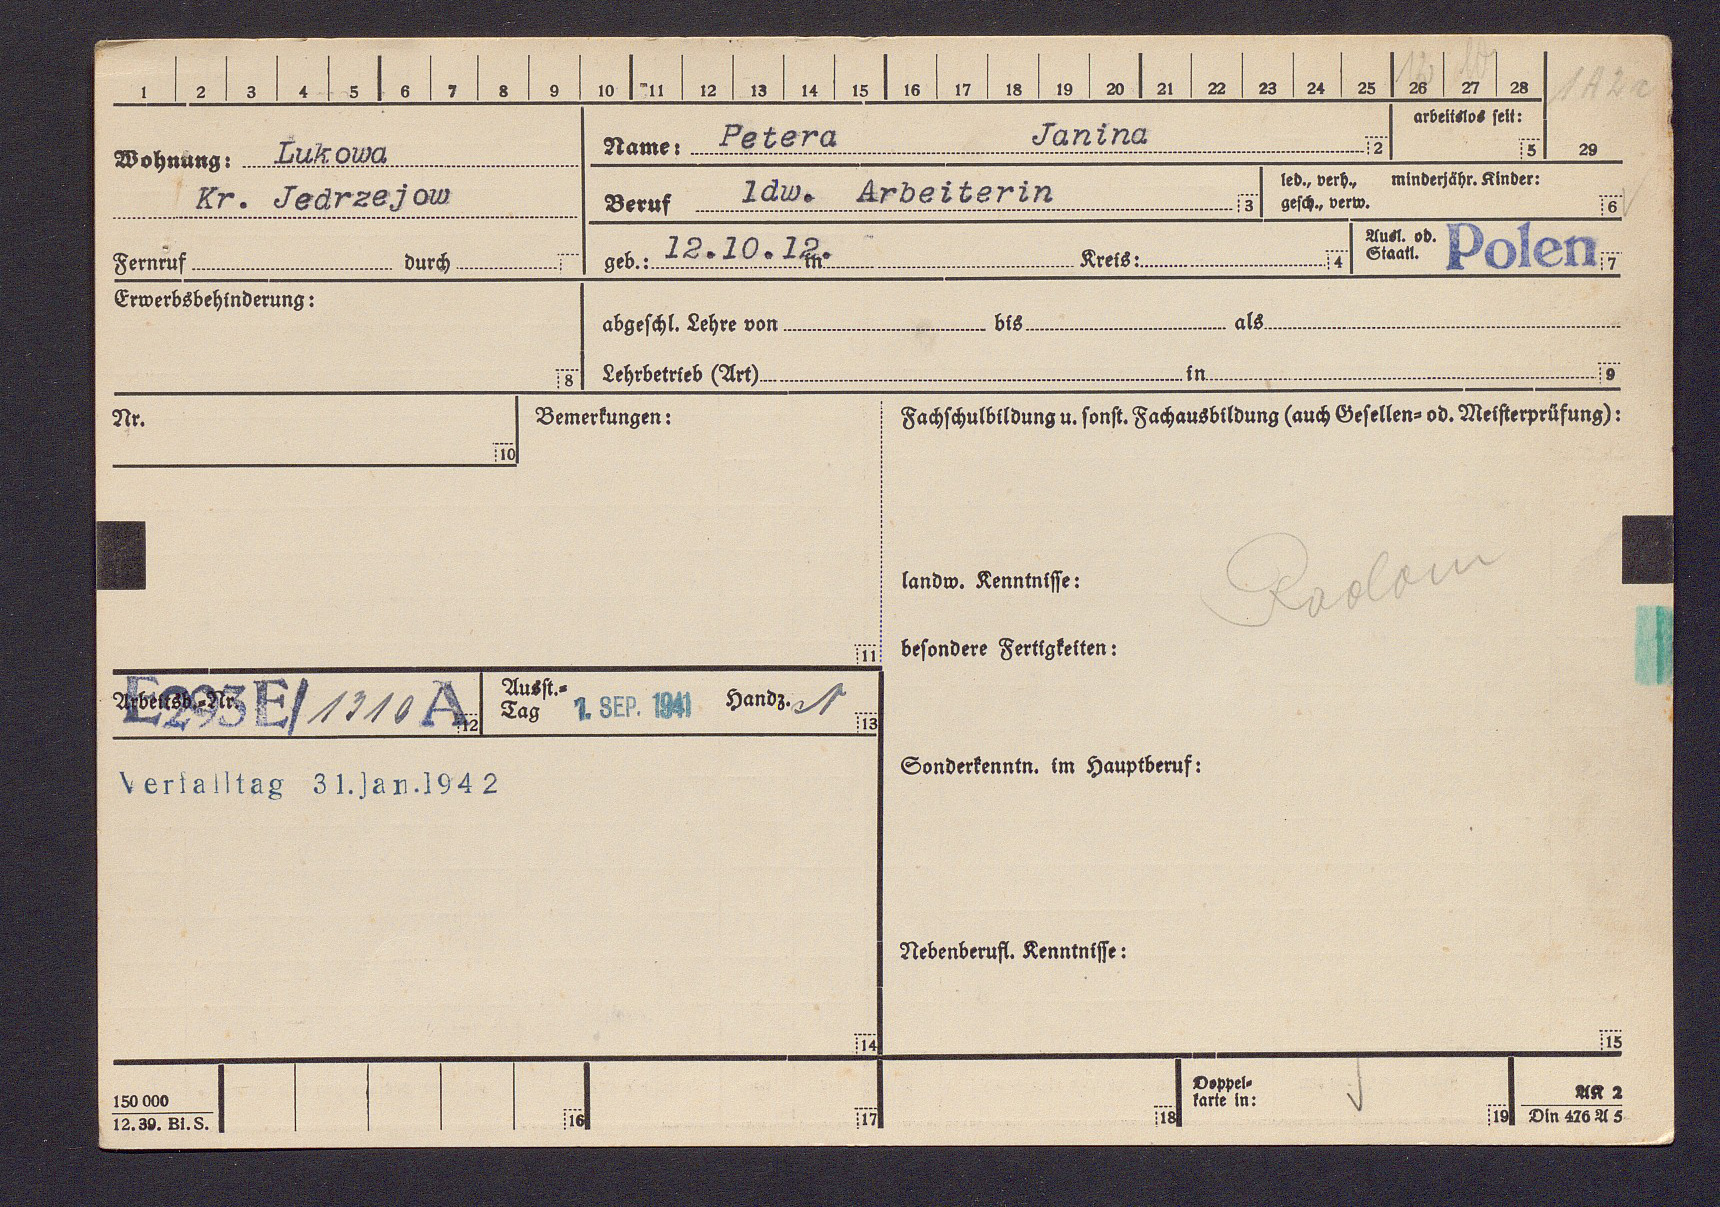 1 2 3 4 5 6 7 8 9 10 11 12 13 14 15 16 17 18 19 20 21 22 23 24 25 26 27 28
1A2a
Wohnung: Lukowa
Kr. Jedrzejow
Fernruf durch
Name: Petera Janina 2
arbeitslos seit: 5
29
Beruf ldw. Arbeiterin 3
led., verh., minderjähr. Kinder:
gesch., verw. 6
geb.: 12.10.12. in Kreis: 4
Ausl. od.
Staatl. Polen 7
Erwerbsbehinderung:
8
abgeschl. Lehre von bis als
Lehrbetrieb (Art) in 9
Nr.
10
Bemerkungen:
11
Fachschulbildung u. sonst. Fachausbildung (auch Gesellen- od. Meisterprüfung):
landw. Kenntnisse:
Radom
besondere Fertigkeiten:
Sonderkenntn. im Hauptberuf:
Nebenberufl. Kenntnisse:
15
Arbeitsb.-Nr. E293E/1310 A 12
Ausst.-
Tag 1. SEP. 1941 Handz. 13
Verfalltag 31.Jan.1942
14
150 000
12. 39. Bi. S.
16 17 18
Doppel-
karte in: 19
AK 2
Din 476 A 5